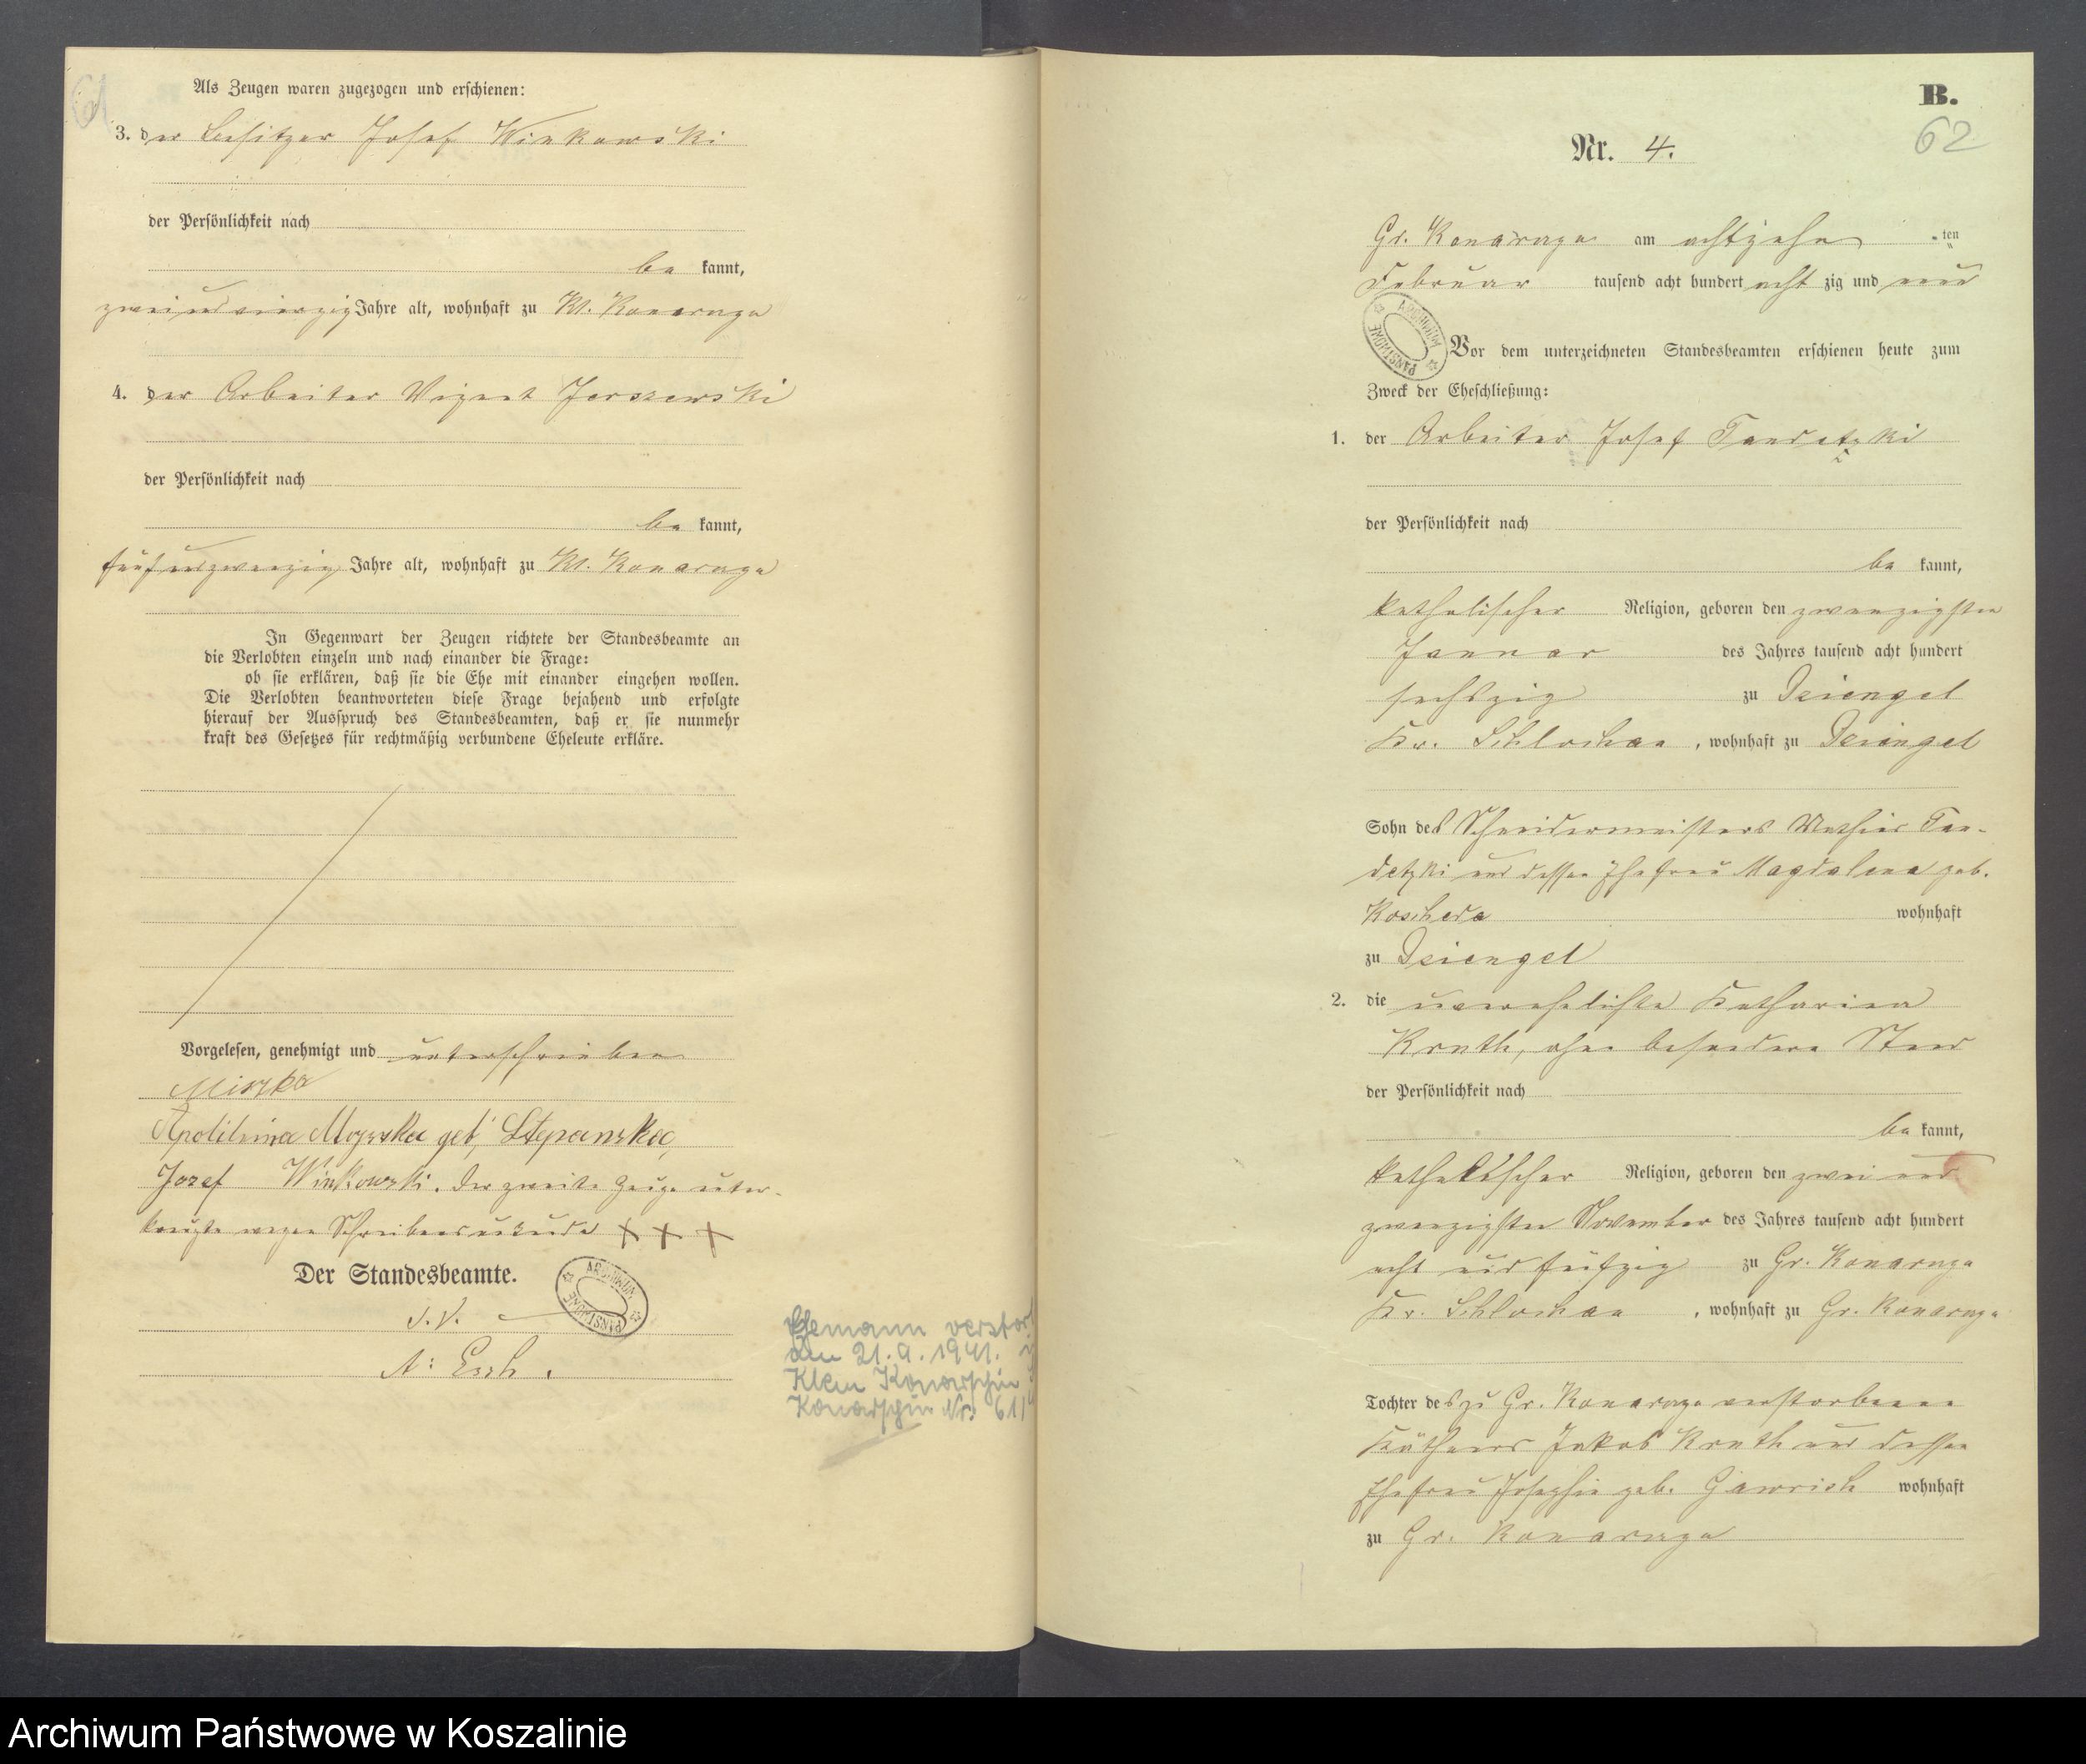 61
Als Zeugen waren zugezogen und erschienen:
3. der Besitzer Josef Winkowski
der Persönlichkeit nach
be kannt,
zweiundvierzig Jahre alt, wohnhaft zu Kl. Konarczyn
4. der Arbeiter Vizent Jerszewski
der Persönlichkeit nach
be kannt,
fünfundzwanzig Jahre alt, wohnhaft zu Kl. Konarczyn
In Gegenwart der Zeugen richtete der Standesbeamte an
die Verlobten einzeln und nach einander die Frage:
ob sie erklären, daß sie die Ehe mit einander eingehen wollen.
Die Verlobten beantworteten diese Frage bejahend und erfolgte
hierauf der Ausspruch des Standesbeamten, daß er sie nunmehr
kraft des Gesetzes für rechtmäßig verbundene Eheleute erkläre.
Vorgelesen, genehmigt und unterschrieben
Miszka
Apolilnina Myszka geb. Stepanska
Jozef Winkowski. Der zweite Zeuge unter-
kreuzte wegen Schreibensunkunde + + +
Der Standesbeamte.
ARCHIWUM PAŃSTWOWE
I. V.
A: Esch.
Ehemann verstor
am 21.9.1941.
Klein Konarschin
Konarschin Nr: 6/1
B.
62
Nr. 4.
Gr. Konarczyn am achtzehn ten
Februar tausend acht hundert acht zig und neun
ARCHIWUM PAŃSTWOWE
Vor dem unterzeichneten Standesbeamten erschienen heute zum
Zweck der Eheschließung:
1. der Arbeiter Josef Tandetzki
der Persönlichkeit nach
be kannt,
katholischer Religion, geboren den zwanzigsten
Januar des Jahres tausend acht hundert
sechszig zu Dsiengel
Kr. Schlochau, wohnhaft zu Dsiengel
Sohn des Schneidermeisters Mathias Tan-
detzki und dessen Ehefrau Magdalena geb.
Koscheda wohnhaft
zu Dsiengel
2. die unverehelichte Katharina
Knuth, ohne besondern Stand
der Persönlichkeit nach
be kannt,
katholischer Religion, geboren den zwei und
zwanzigsten November des Jahres tausend acht hundert
acht und fünfzig zu Gr. Konarczyn
Kr. Schlochau, wohnhaft zu Gr. Konarczyn
Tochter des zu Gr. Konarczyn verstorbenen
Käthners Jakob Knuth und dessen
Ehefrau Josephine geb. Gawrich wohnhaft
zu Gr. Konarczyn
Archiwum Państwowe w Koszalinie